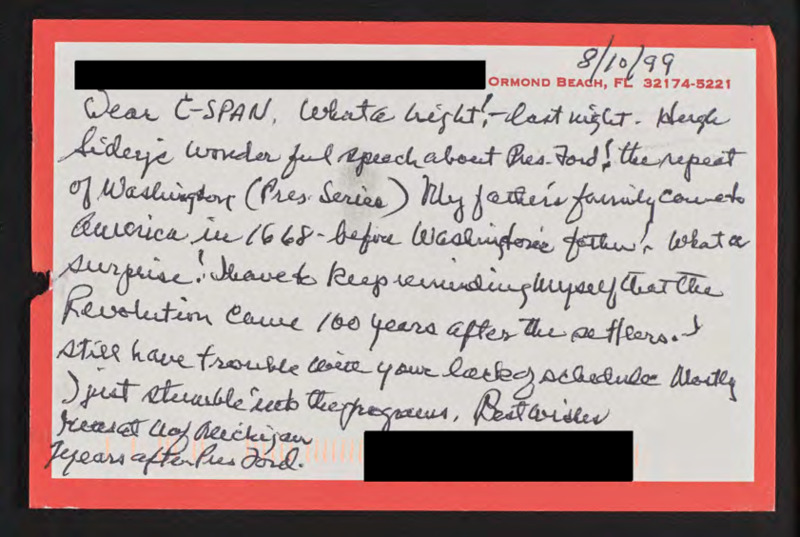 8/10/99
ORMOND BEACH, FL 32174-5221
Dear C-SPAN, What a night! - last night. Hugh
Sidey's wonderful speech about Pres. Ford! the repeat
of Washington (Pres. Series) My father's family came to
America in 1668 - before Washington's father! What a
surprise! I have to keep reminding myself that the
Revolution came 100 years after the settlers. I
still have trouble with your lack of schedule Mostly
I just stumble into the programs. Best wishes
U of Michigan
7 years after Pres Ford.